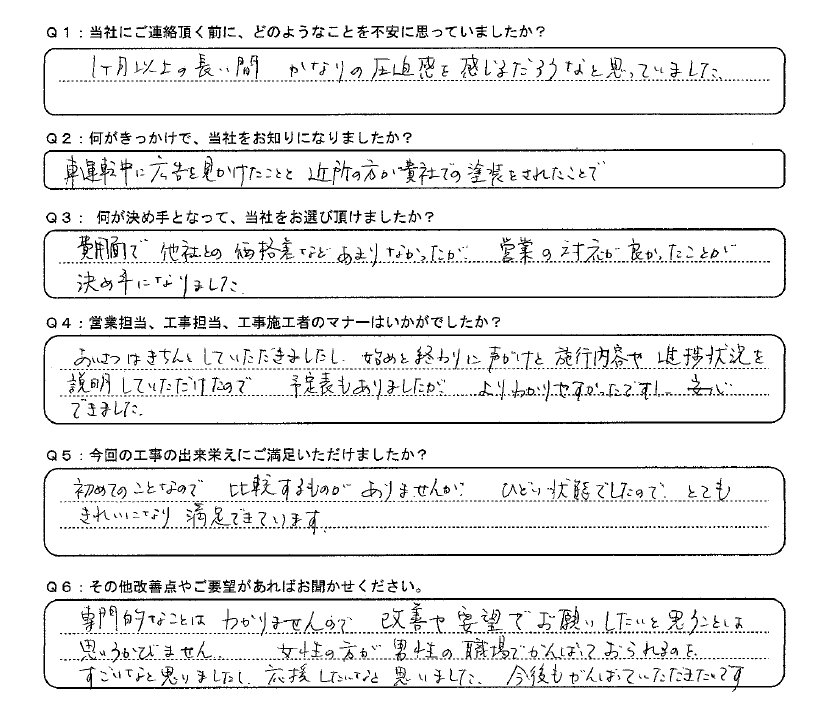 Q1：当社にご連絡頂く前に、どのようなことを不安に思っていましたか？
1ヶ月以上の長い間 かなりの圧迫感を感じるだろうなと思っていました。
Q2：何がきっかけで、当社をお知りになりましたか？
車運転中に広告を見かけたことと 近所の方が貴社での塗装をされたことで
Q3： 何が決め手となって、当社をお選び頂けましたか？
費用面で 他社との価格差などあまりなかったが、 営業の対応が良かったことが
決め手になりました。
Q4：営業担当、工事担当、工事施工者のマナーはいかがでしたか？
あいさつはきちんとしていただきましたし、始めと終わりに声がけと 施行内容や 進捗状況を
説明していただけたので 予定表もありましたが、 よりわかりやすかったですし、安心
できました。
Q5：今回の工事の出来栄えにご満足いただけましたか？
初めてのことなので 比較するものが ありませんが、 ひどい状態でしたので、とても
きれいになり 満足できています。
Q6：その他改善点やご要望があればお聞かせください。
専門的なことは わかりませんので 改善や要望でお願いしたいと思うことは
思いうかびません。 女性の方が男性の職場でがんばっておられるのを、
すごいなと思いましたし、応援したいなと思いました。今後もがんばっていただきたいです